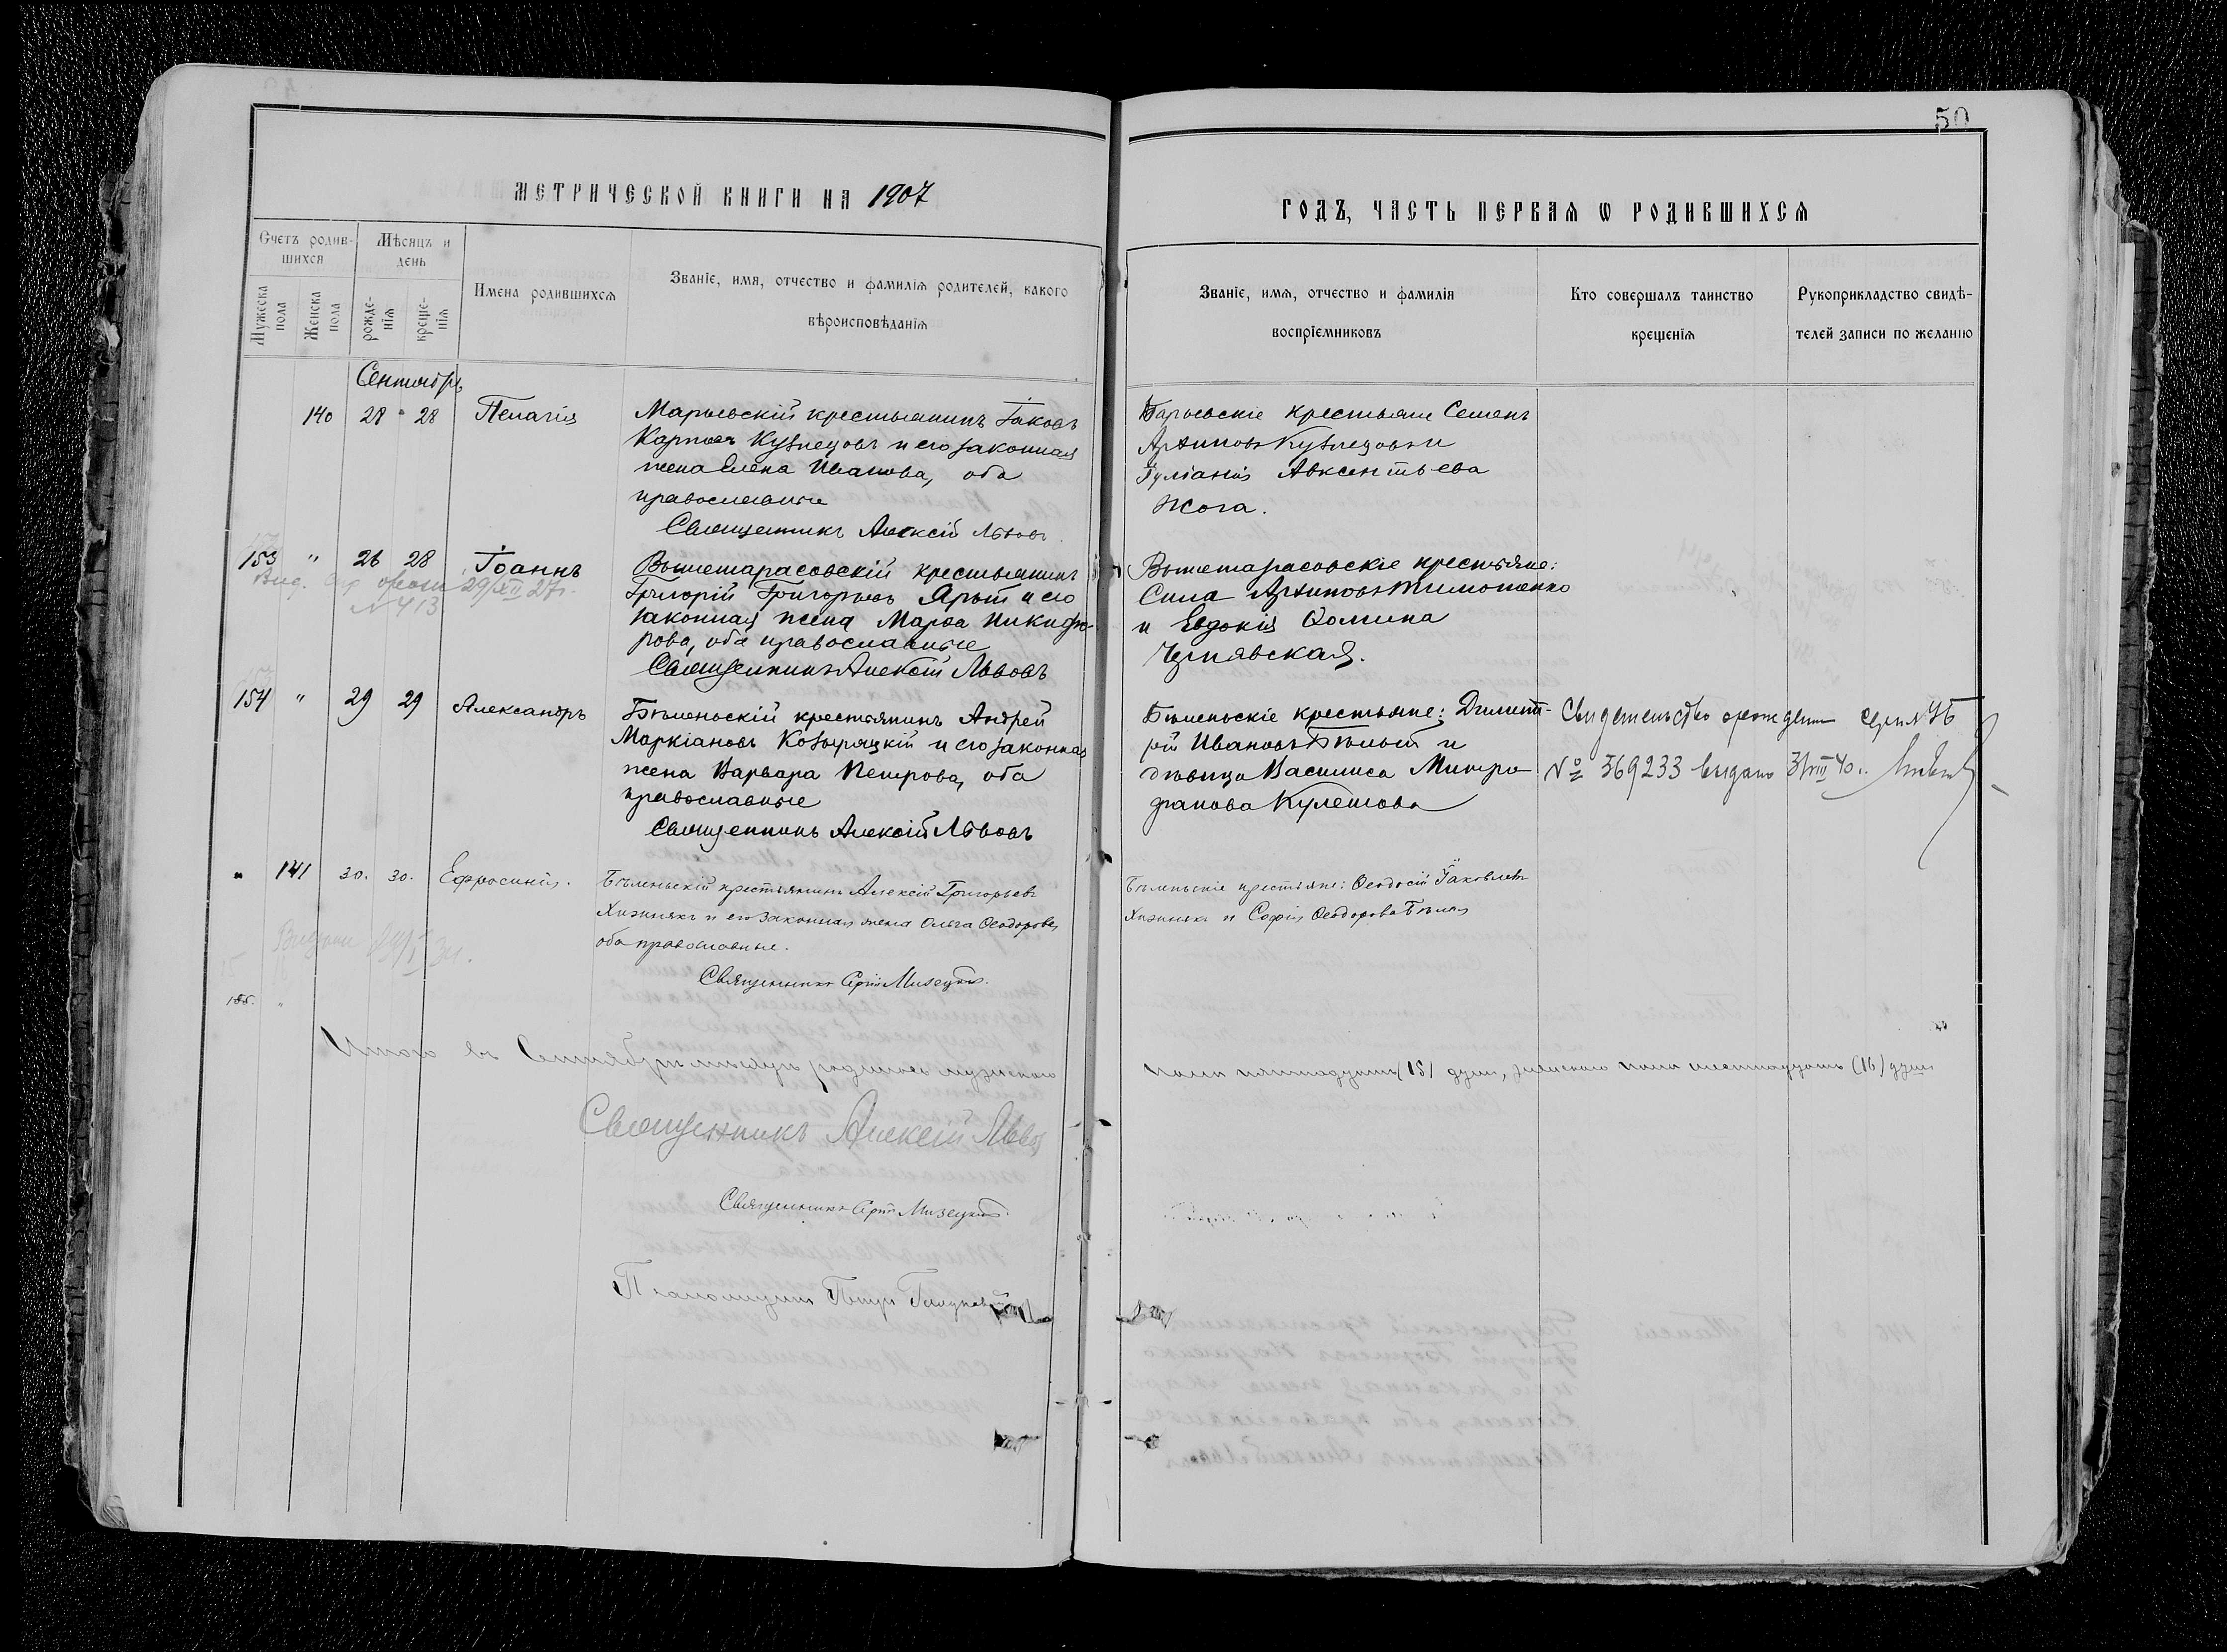 50
МЕТРИЧЕСКОЙ КНИГИ НА 1907
ГОДЪ, ЧАСТЬ ПЕРВАЯ Ѡ РОДИВШИХСЯ
Счетъ родив-
шихся
Мѣсяцъ и
день
Мужеска
пола
Женска
пола
рожде-
нія
креще-
нія
Имена родившихся
Званіе, имя, отчество и фамилія родителей, какого
вѣроисповѣданія
Званіе, имя, отчество и фамилія
воспріемниковъ
Кто совершалъ таинство
крещенія
Рукоприкладство свидѣ-
телей записи по желанію
Сентябрь
140 28 28 Пелагія
Марьевскій крестьянинъ Іаковъ
Карповъ Кузнецовъ и его законная
жена Елена Иванова, оба
православные
Священникъ Алексій Львовъ
крестьяне Семенъ
Архиповъ Кузнецовъ и
Іуліанія Авксентьева
Жога.
153 " 26 28 Іоаннъ
29/XII 27г.
N 413
Вышетарасовскій крестьянинъ
Григорій Григорьевъ Ярый и его
законная жена Марѳа Никифо-
рова, оба православные
Священникъ Алексій Львовъ
Вышетарасовскіе крестьяне:
Сила Архиповъ Тимошенко
и Евдокія Ѳомина
Чернявская.
154 " 29 29 Александръ
Бѣленьскій крестьянинъ Андрей
Маркіановъ Козыряцкій и его законная
жена Варвара Петрова, оба
православные
Священникъ Алексій Львовъ
Бѣленьскіе крестьяне: Димит-
рій Ивановъ Бѣлый и
дѣвица Василиса Митро-
фанова Кулешова
Свидетельство о рождении
№ 369233 выдано 31/VIII 40г.
" 141 30. 30. Ефросинія.
Бѣленьскій крестьянинъ Алексій Григорьевъ
Хижнякъ и его законная жена Ольга Ѳеодорова,
оба православные.
Священникъ Мизецкій.
Бѣленьскіе крестьяне: Ѳеодосій Іаковлевъ
Хижнякъ и Софія Ѳеодорова Бѣлая
155. "
Итого въ Сентябрѣ мѣсяцѣ родилось мужескаго
пола пятнадцать (15) душъ, женскаго пола шестнадцать (16) душъ
Священникъ Алексій Львовъ
Священникъ Мизецкій
Псаломщикъ Петръ